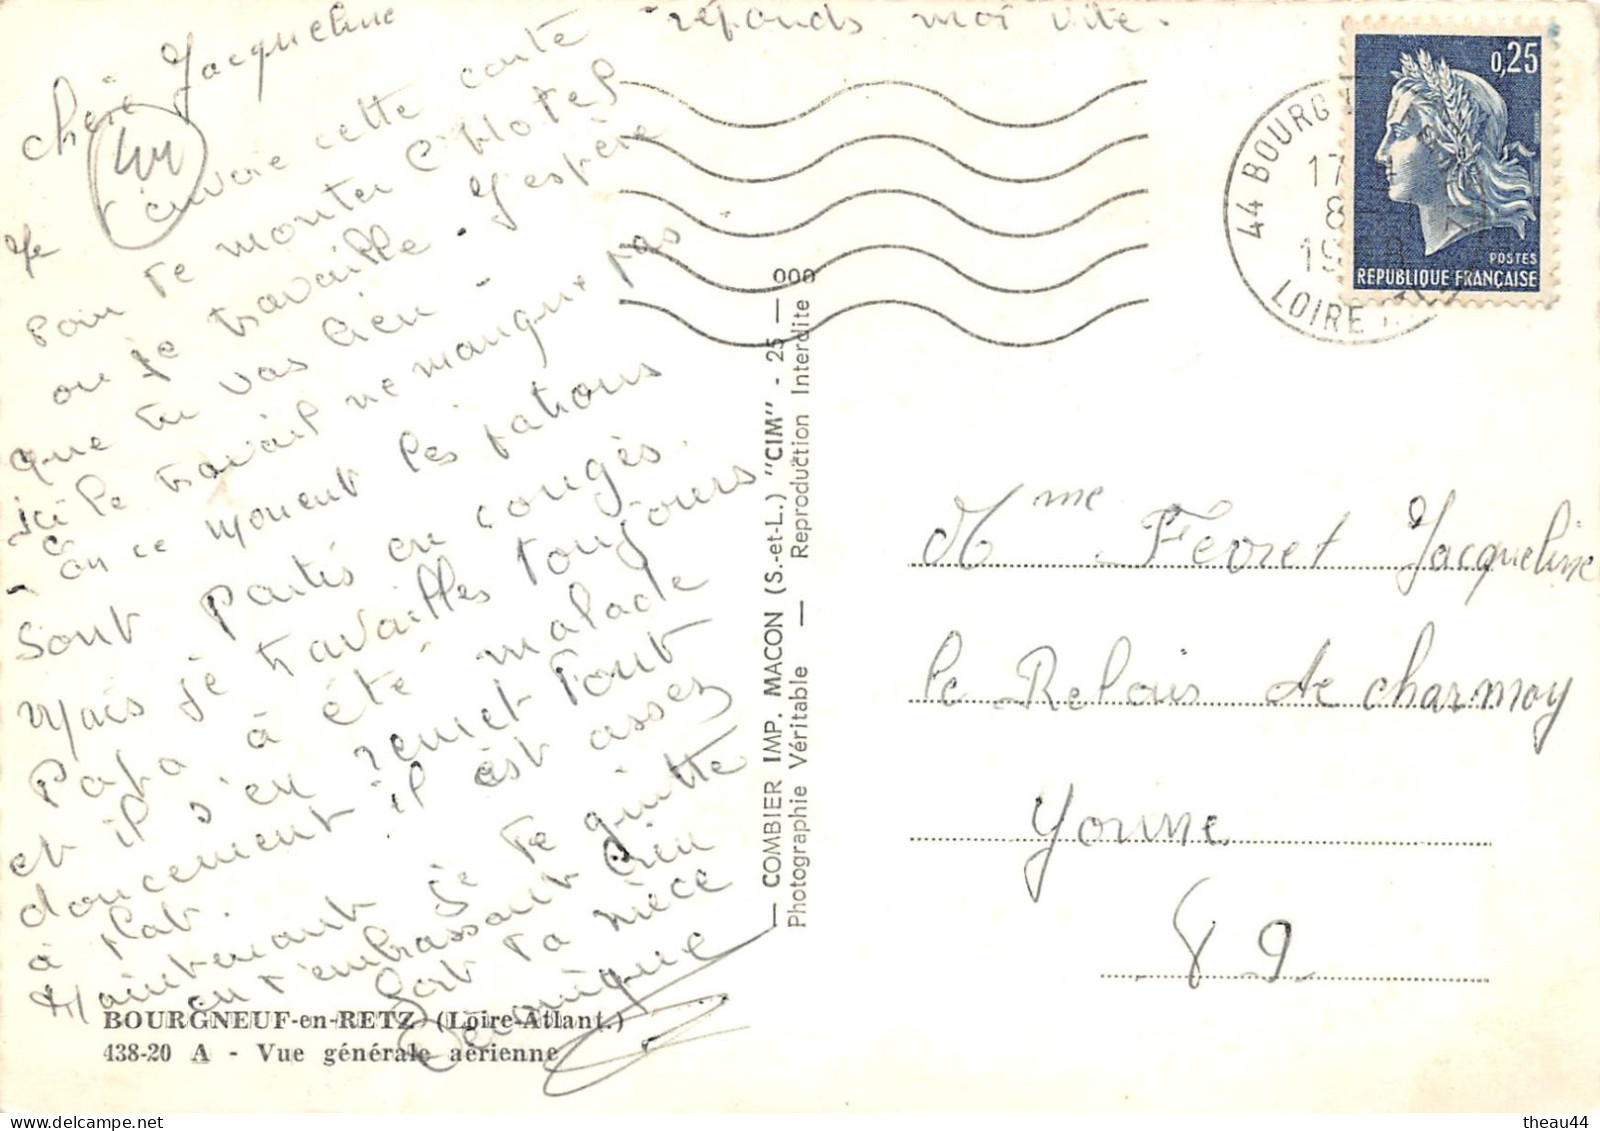 réponds moi vite.
chère Jacqueline
44
Je t'envoie cette carte
pour te montrer l'Hotel
ou je travaille. J'espère
que tu vas bien -
Ici le travail ne manque pas
- En ce moment les patrons
sont partis en congés.
Mais je travailles toujours
Papa à été malade
et il s'en remet tout
doucement il est assez
à plat.
Maintenant je te quitte
en t'embrassant bien
fort ta nièce
BOURGNEUF-en-RETZ (Loire-Atlant.)
438-20 A - Vue générale aérienne
COMBIER IMP. MACON (S.-et-L.) "CIM" - 25 — 000
Photographie Véritable — Reproduction Interdite
0,25
POSTES
REPUBLIQUE FRANÇAISE
44 BOURG
17
8-
19
LOIRE
Mme Fevret Jacqueline
le Relais de Charmoy
Yonne
89
theau44